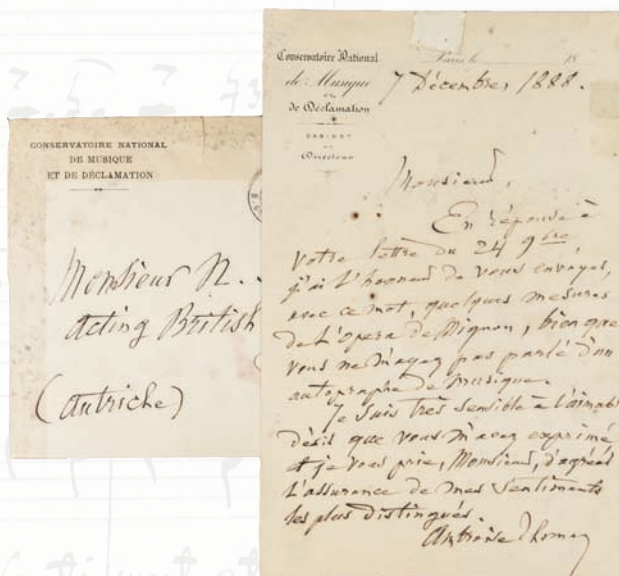 CONSERVATOIRE NATIONAL
DE MUSIQUE
ET DE DÉCLAMATION
Monsieur N.
Acting British
(Autriche)
Conservatoire National
de Musique
et
de Déclamation
CABINET
du
Directeur
Paris, le 18
7 Décembre 1888.
Monsieur,
En réponse à
votre lettre du 24 9bre,
j'ai l'honneur de vous envoyer,
avec ce mot, quelques mesures
de l'opéra de Mignon, bien que
vous ne m'ayez pas parlé d'un
autographe de musique.
Je suis très sensible à l'aimable
désir que vous m'avez exprimé
et je vous prie, Monsieur, d'agréer
l'assurance de mes sentiments
les plus distingués.
Ambroise Thomas